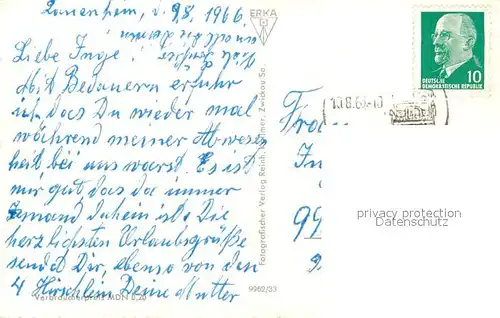 d. 9.8. 1966
ERKA
Liebe Inge!
Mit Bedauern erfuhr
ich das Du wieder mal
während meiner Abwes
heit bei uns warst. Es ist
nur gut das da immer
Jemand daheim ist. Die
herzlichsten Urlaubsgrüße
sendet Dir, ebenso von den
4 Hirschlein Deine Mutter
Verbraucherpreis MDN 0,20
9962/33
Fotografischer Verlag Reinh. Kallmer, Zwickau Sa.
DEUTSCHE
DEMOKRATISCHE REPUBLIK
10
10.8.66-10
Fra
In
99
privacy protection
Datenschutz